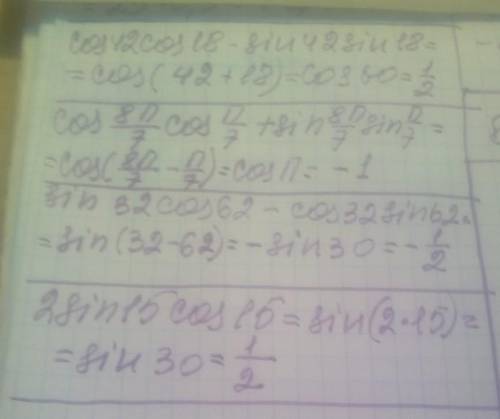 cos42cos18 - sin42sin18 =
= cos(42+18) = cos60 = 1/2
cos 8π/7 cos π/7 + sin 8π/7 sin π/7 =
= cos(8π/7 - π/7) = cosπ = -1
sin 32cos62 - cos32sin62 =
= sin(32-62) = -sin30 = -1/2
2sin15cos15 = sin(2·15) =
= sin30 = 1/2